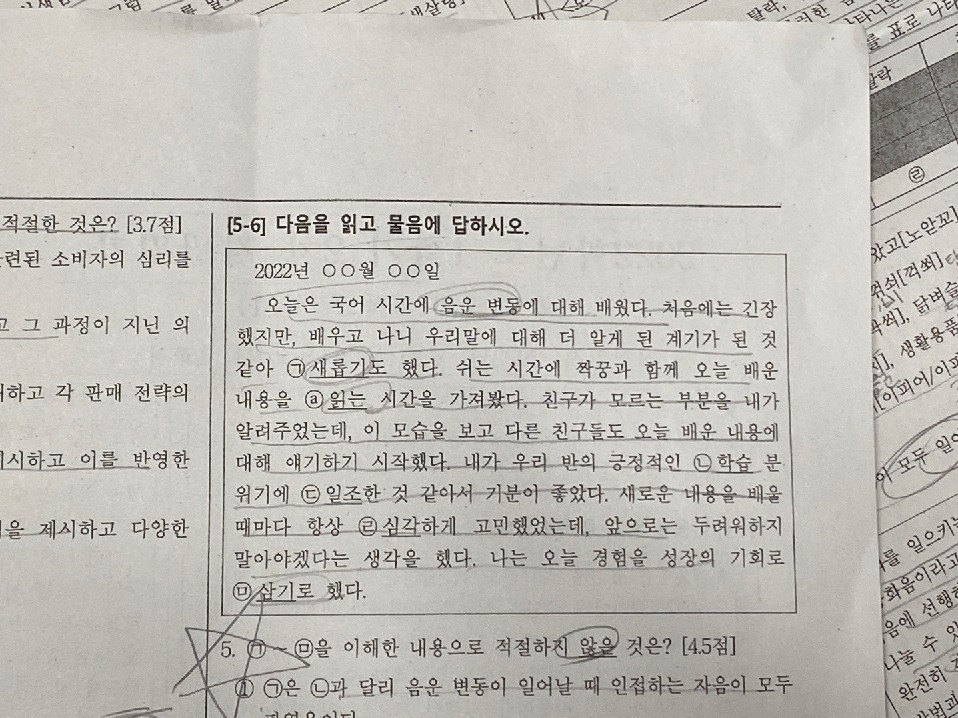 적절한 것은? [3.7점]
련된 소비자의 심리를
고 그 과정이 지닌 의
하고 각 판매 전략의
시하고 이를 반영한
을 제시하고 다양한
[5-6] 다음을 읽고 물음에 답하시오.
2022년 ○○월 ○○일
오늘은 국어 시간에 음운 변동에 대해 배웠다. 처음에는 긴장
했지만, 배우고 나니 우리말에 대해 더 알게 된 계기가 된 것
같아 ㉠새롭기도 했다. 쉬는 시간에 짝꿍과 함께 오늘 배운
내용을 ⓐ읽는 시간을 가져봤다. 친구가 모르는 부분을 내가
알려주었는데, 이 모습을 보고 다른 친구들도 오늘 배운 내용에
대해 얘기하기 시작했다. 내가 우리 반의 긍정적인 ㉡학습 분
위기에 ㉢일조한 것 같아서 기분이 좋았다. 새로운 내용을 배울
때마다 항상 ㉣심각하게 고민했었는데, 앞으로는 두려워하지
말아야겠다는 생각을 했다. 나는 오늘 경험을 성장의 기회로
㉤삼기로 했다.
5. ㉠ ~ ㉤을 이해한 내용으로 적절하지 않은 것은? [4.5점]
① ㉠은 ㉡과 달리 음운 변동이 일어날 때 인접하는 자음이 모두
를 표로 나타
탈락
㉣
았고[노앋꼬]
꺽쇠[꺽쐬]
닭벼슬
생활용품
[이피어/이
모두 일어
를 일으키는
화음이라고
음에 선행
나눌 수 있
완전히